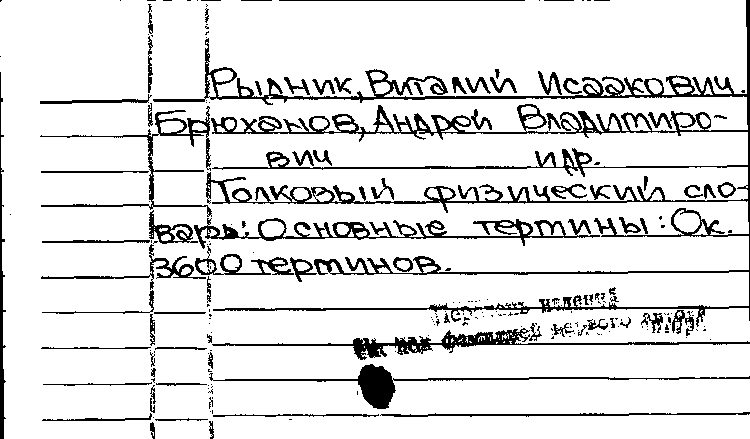 Рыдник, Виталий Исаакович.
Брюханов, Андрей Владимиро-
вич и др.
Толковый физический сло-
варь: Основные термины: Ок.
3600 терминов.
Перечень изданий
См. под фамилией первого автора